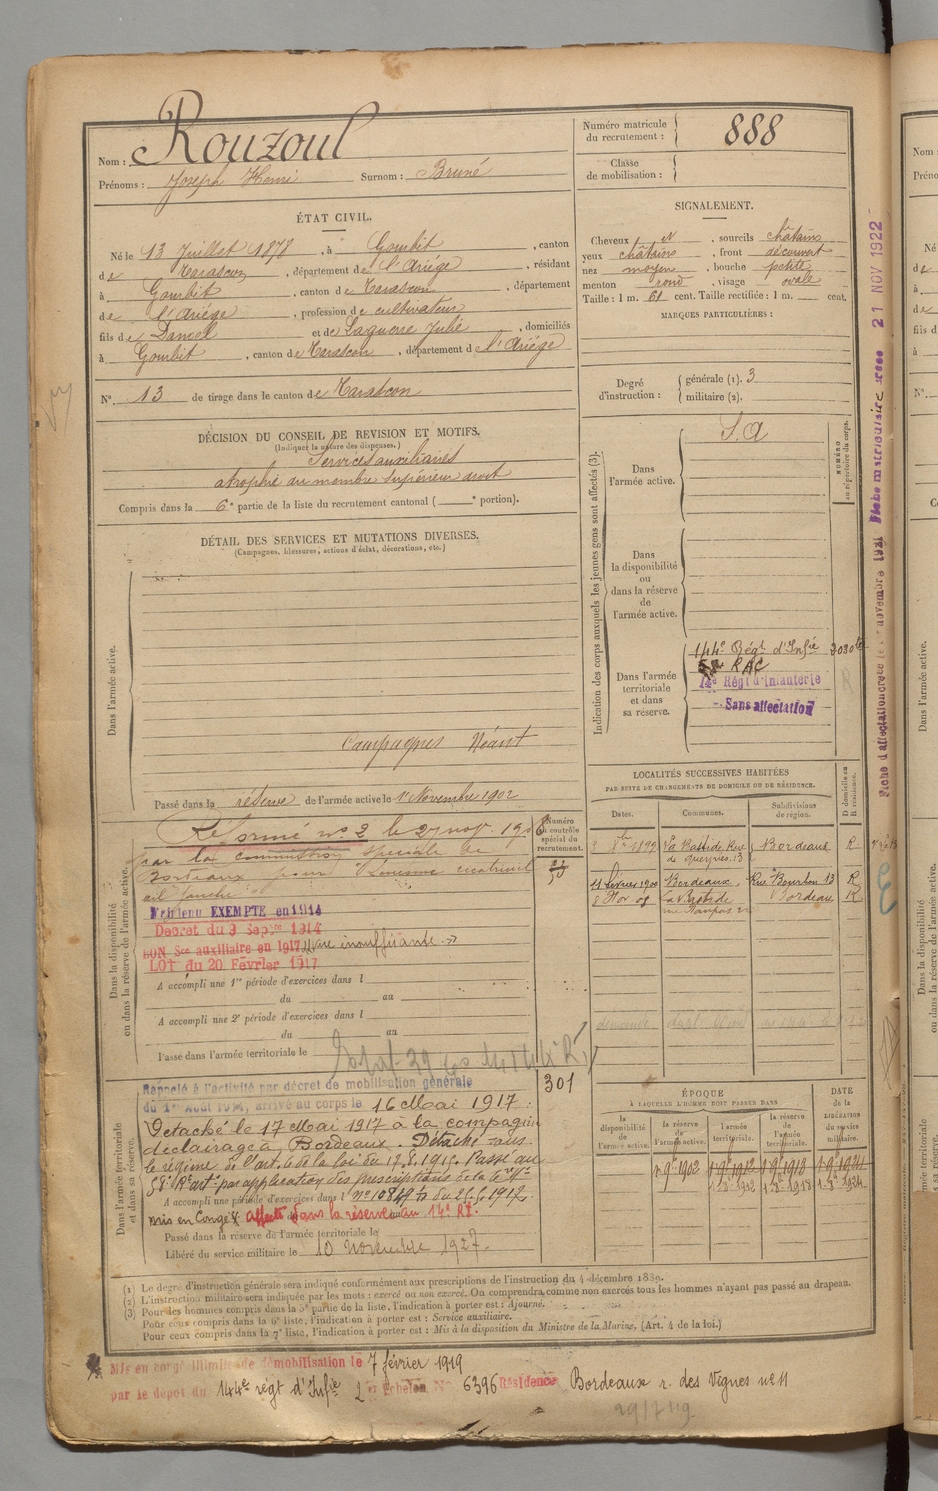 Nom : Rouzoul
Prénoms : Joseph Henri Surnom : Bruné
Numéro matricule du recrutement : 888
Classe de mobilisation :
ÉTAT CIVIL.
Né le 13 Juillet 1878, à Gourbit, canton
de Tarascon, département de l'Ariége, résidant
à Gourbit, canton de Tarascon, département
de l'Ariége, profession de cultivateur
fils de Daniel et de Laguerre Julie, domiciliés
à Gourbit, canton de Tarascon, département de l'Ariége
N° 13 de tirage dans le canton de Tarascon
SIGNALEMENT.
Cheveux et, sourcils châtains
yeux châtains, front découvert
nez moyen, bouche petite
menton rond, visage ovale
Taille : 1 m. 61 cent. Taille rectifiée : 1 m. cent.
MARQUES PARTICULIÈRES :
Degré d'instruction : générale (1). 3
militaire (2).
DÉCISION DU CONSEIL DE REVISION ET MOTIFS.
(Indiquer la nature des dispenses.)
Services auxiliaires
atrophie du membre supérieur droit
Compris dans la 6e partie de la liste du recrutement cantonal ( e portion).
DÉTAIL DES SERVICES ET MUTATIONS DIVERSES.
(Campagnes, blessures, actions d'éclat, décorations, etc.)
Dans l'armée active.
Campagnes Néant
Passé dans la réserve de l'armée active le 1 Novembre 1902
Indication des corps auxquels les jeunes gens sont affectés (3).
NUMÉRO au répertoire du corps.
Dans l'armée active.
S. A
Dans la disponibilité ou dans la réserve de l'armée active.
Dans l'armée territoriale et dans sa réserve.
144e Régt d'Infie
RAC
14e Régt d'Infanterie
Sans affectation
Fiche matriculaire 21 NOV 1922
LOCALITÉS SUCCESSIVES HABITÉES
PAR SUITE DE CHANGEMENTS DE DOMICILE OU DE RÉSIDENCE.
Dates. Communes. Subdivisions de région. D domicile ou R résidence.
1899 La Bastide Rue de 13 Bordeaux R
11 février 1900 Bordeaux, Rue Bourbon 13 R
8 Nov 08 La Bastide Bordeaux R
Dans la disponibilité ou dans la réserve de l'armée active.
Numéro au contrôle spécial du recrutement.
Réformé n° 2 le 27 nov. 190
par la commission spéciale de
Bordeaux pour cicatriciel
œil gauche
Maintenu EXEMPTE en 1914
Décret du 9 Sepre 1914
BON Sce auxiliaire en 1917 insuffisante
LOI du 20 Février 1917
A accompli une 1re période d'exercices dans l
du au
A accompli une 2e période d'exercices dans l
du au
Passé dans l'armée territoriale le
301
Dans l'armée territoriale et dans sa réserve.
Rappelé à l'activité par décret de mobilisation générale
du 1er Août 1914, arrivé au corps le 16 Mai 1917.
Détaché le 17 Mai 1917 à la compagnie
d'éclairage à Bordeaux. Détaché sous
le régime de l'art. 6 de la loi du 17.8.1915. Passé au
58e Rt artie par application des prescriptions de la
A accompli une période d'exercices dans l
Mis en Congé Affecté dans la réserve au 14e RI.
Passé dans la réserve de l'armée territoriale le
Libéré du service militaire le 10 novembre 1927.
ÉPOQUE
A LAQUELLE L'HOMME DOIT PASSER DANS
DATE de la LIBÉRATION du service militaire.
la disponibilité de l'armée active. la réserve de l'armée active. l'armée territoriale. la réserve de l'armée territoriale.
1.9bre1902 1.9bre1912 1.9bre1918 1.9bre1924
(1) Le degré d'instruction générale sera indiqué conformément aux prescriptions de l'instruction du 4 décembre 1889.
(2) L'instruction militaire sera indiquée par les mots : exercé ou non exercé. On comprendra comme non exercés tous les hommes n'ayant pas passé au drapeau.
(3) Pour les hommes compris dans la 5e partie de la liste, l'indication à porter est : Ajourné.
Pour ceux compris dans la 6e liste, l'indication à porter est : Service auxiliaire.
Pour ceux compris dans la 7e liste, l'indication à porter est : Mis à la disposition du Ministre de la Marine, (Art. 4 de la loi.)
Mis en congé illimité de démobilisation le 7 février 1919
par le dépôt du 144e régt d'Infie 2 er Echelon N° 6396 Résidence Bordeaux r. des Vignes n° 11